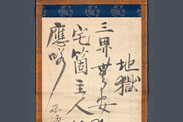 地獄
三界無安
宅箇主人
應喏